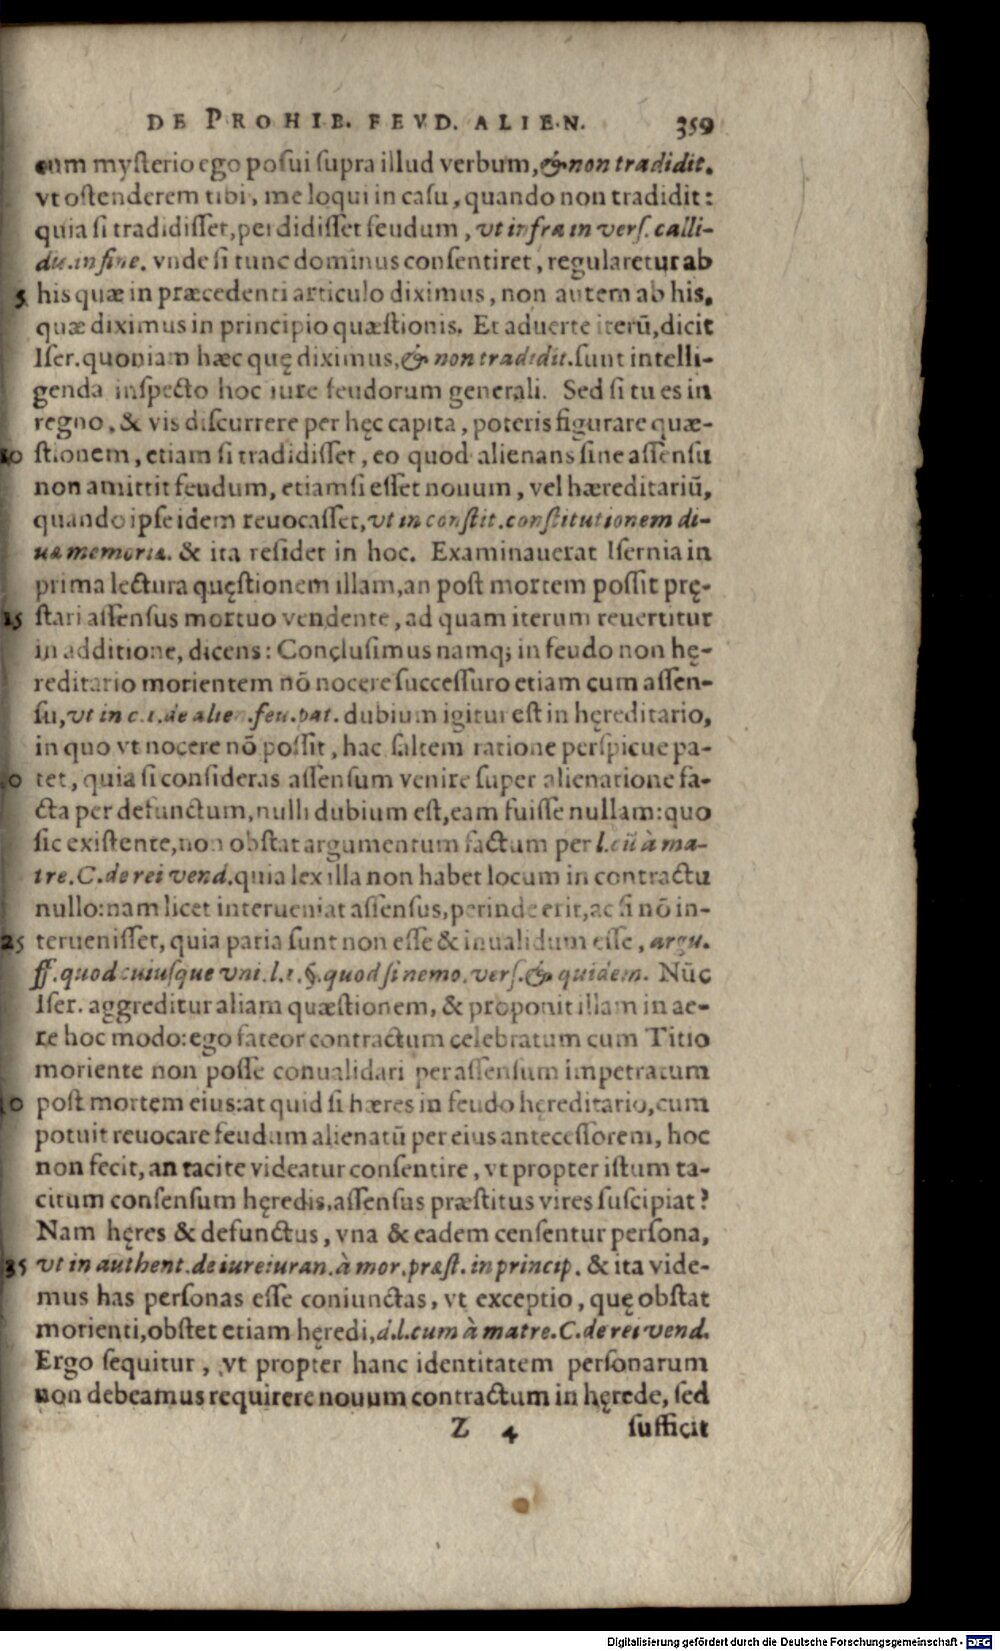 DE PROHIB. FEVD. ALIEN. 359
cum mysterio ego posui supra illud verbum, & non tradidit.
vt ostenderem tibi, me loqui in casu, quando non tradidit:
quia si tradidisset, perdidisset feudum, vt infra in vers. calli-
du. in fine. vnde si tunc dominus consentiret, regularetur ab
5 his quæ in præcedenti articulo diximus, non autem ab his,
quæ diximus in principio quæstionis. Et aduerte iterū, dicit
Iser. quoniam hæc quę diximus, & non tradidit. sunt intelli-
genda inspecto hoc iure feudorum generali. Sed si tu es in
regno, & vis discurrere per hęc capita, poteris figurare quæ-
10 stionem, etiam si tradidisset, eo quod alienans sine assensu
non amittit feudum, etiamsi esset nouum, vel hæreditariū,
quando ipse idem reuocasset, vt in constit. constitutionem di-
uæ memoriæ. & ita residet in hoc. Examinauerat Isernia in
prima lectura quęstionem illam, an post mortem possit prę-
15 stari assensus mortuo vendente, ad quam iterum reuertitur
in additione, dicens: Conclusimus namq; in feudo non hę-
reditario morientem nō nocere successuro etiam cum assen-
su, vt in c. 1. de alien. feu. pat. dubium igitur est in hęreditario,
in quo vt nocere nō possit, hac saltem ratione perspicue pa-
20 tet, quia si consideras assensum venire super alienatione fa-
cta per defunctum, nulli dubium est, eam fuisse nullam: quo
sic existente, non obstat argumentum factum per l. cū à ma-
tre. C. de rei vend. quia lex illa non habet locum in contractu
nullo: nam licet interueniat assensus, perinde erit, ac si nō in-
25 teruenisset, quia paria sunt non esse & inualidum esse, argu.
ff. quod cuiusque vni. l. 1. §. quod si nemo. vers. & quidem. Nūc
Iser. aggreditur aliam quæstionem, & proponit illam in ae-
re hoc modo: ego fateor contractum celebratum cum Titio
moriente non posse conualidari per assensum impetratum
30 post mortem eius: at quid si hæres in feudo hęreditario, cum
potuit reuocare feudum alienatū per eius antecessorem, hoc
non fecit, an tacite videatur consentire, vt propter istum ta-
citum consensum hęredis, assensus præstitus vires suscipiat?
Nam hęres & defunctus, vna & eadem censentur persona,
35 vt in authent. de iureiuran. à mor. præst. in princip. & ita vide-
mus has personas esse coniunctas, vt exceptio, quę obstat
morienti, obstet etiam hęredi, d. l. cum à matre. C. de rei vend.
Ergo sequitur, vt propter hanc identitatem personarum
non debeamus requirere nouum contractum in hęrede, sed
Z 4 sufficit
Digitalisierung gefördert durch die Deutsche Forschungsgemeinschaft - DFG